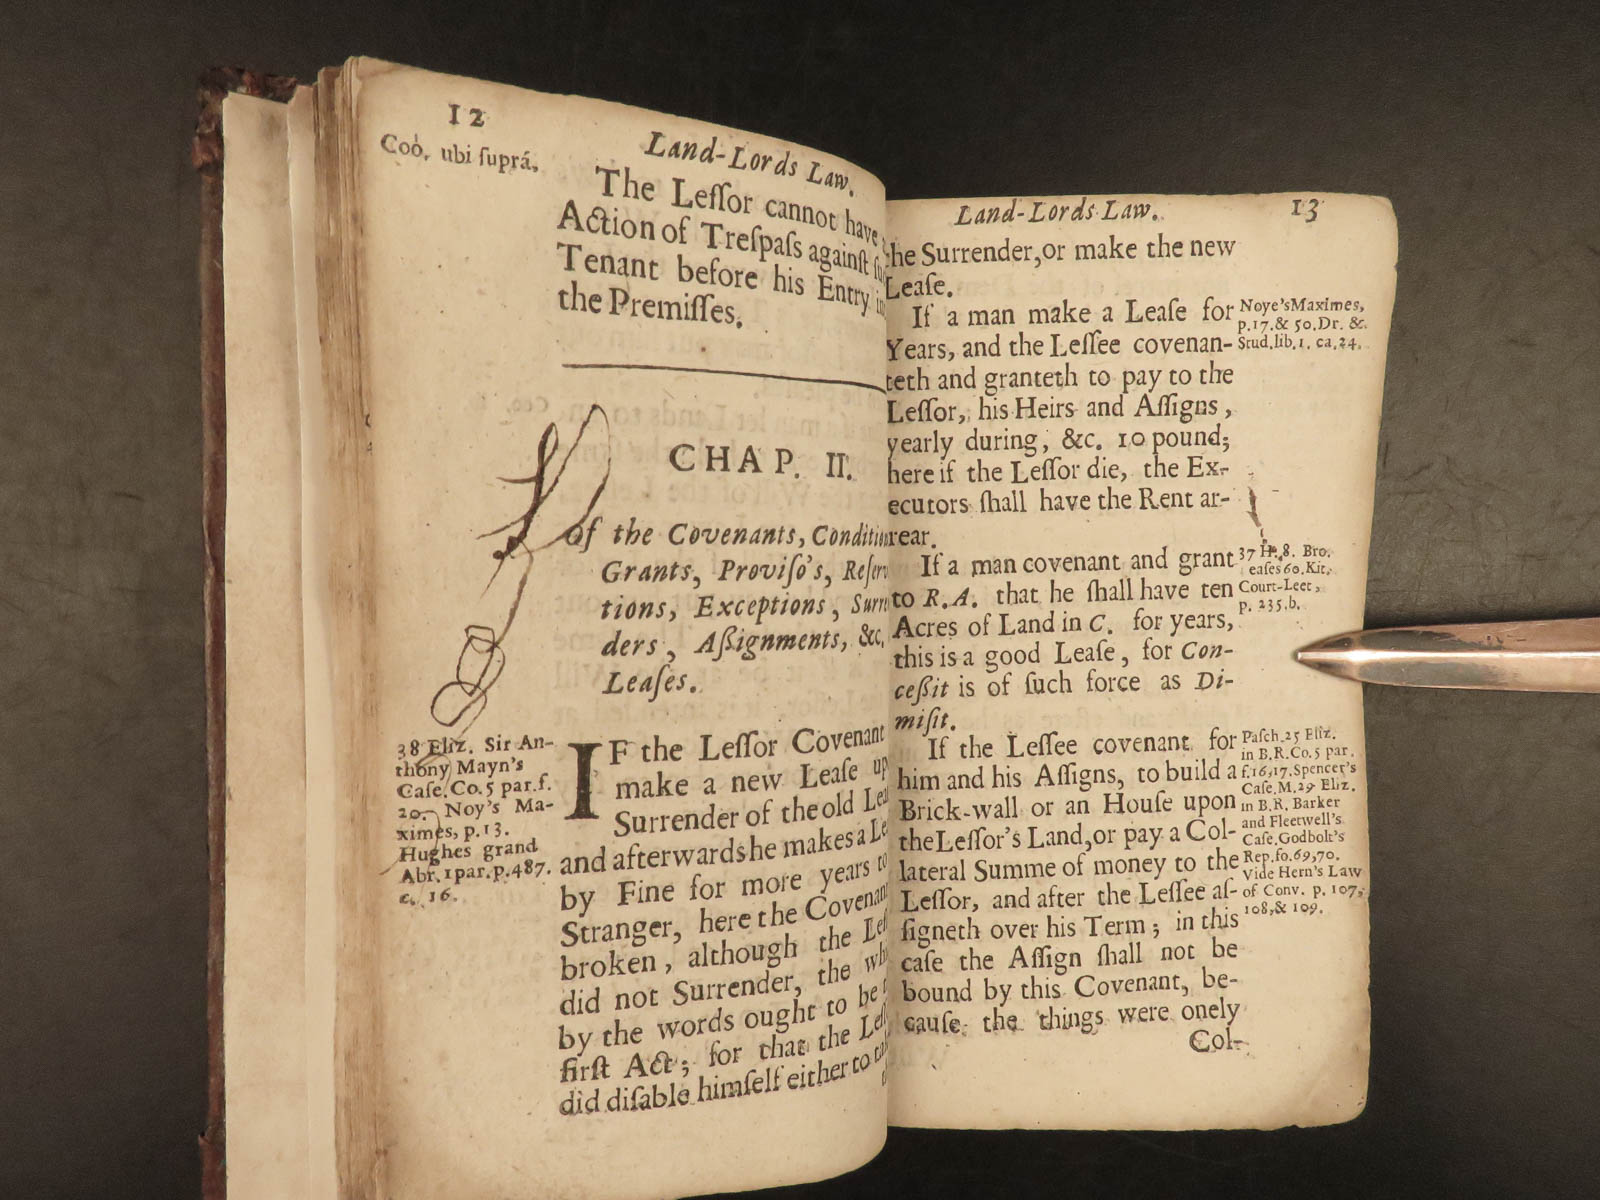 12
Land-Lords Law.
Coo. ubi ſuprá.
The Leſſor cannot have
Action of Treſpaſs againſt
Tenant before his Entry
the Premiſſes.
CHAP. II.
of the Covenants, Conditi
Grants, Proviſo's, Reſer
tions, Exceptions, Surre
ders, Aßignments, &c.
Leaſes.
38 Eliz. Sir An-
thony Mayn's
Caſe. Co. 5 par. f.
20. Noy's Ma-
ximes, p. 13.
Hughes grand
Abr. 1 par. p. 487.
c. 16.
IF the Leſſor Covenant
make a new Leaſe up
Surrender of the old Lea
and afterwards he makes a Le
by Fine for more years to
Stranger, here the Covenan
broken, although the Leſ
did not Surrender, the wh
by the words ought to be
firſt Act; for that the Leſ
did diſable himſelf either to ta
Land-Lords Law. 13
the Surrender, or make the new
Leaſe.
If a man make a Leaſe for
Years, and the Leſſee covenan-
teth and granteth to pay to the
Leſſor, his Heirs and Aſſigns,
yearly during, &c. 10 pound;
here if the Leſſor die, the Ex-
ecutors ſhall have the Rent ar-
rear.
If a man covenant and grant
to R. A. that he ſhall have ten
Acres of Land in C. for years,
this is a good Leaſe, for Con-
ceßit is of ſuch force as Di-
miſit.
If the Leſſee covenant for
him and his Aſſigns, to build a
Brick-wall or an Houſe upon
the Leſſor's Land, or pay a Col-
lateral Summe of money to the
Leſſor, and after the Leſſee aſ-
ſigneth over his Term; in this
caſe the Aſſign ſhall not be
bound by this Covenant, be-
cauſe the things were onely
Col-
Noye's Maximes,
p. 17. & 50. Dr. &
Stud. lib. 1. ca. 24.
37 H. 8. Bro.
eaſes 60. Kit.
Court-Leet,
p. 235. b.
Paſch. 25 Eliz.
in B. R. Co. 5 par.
f. 16, 17. Spencer's
Caſe. M. 29 Eliz.
in B. R. Barker
and Fleetwell's
Caſe. Godbolt's
Rep. fo. 69, 70.
Vide Hern's Law
of Conv. p. 107,
108, & 109.